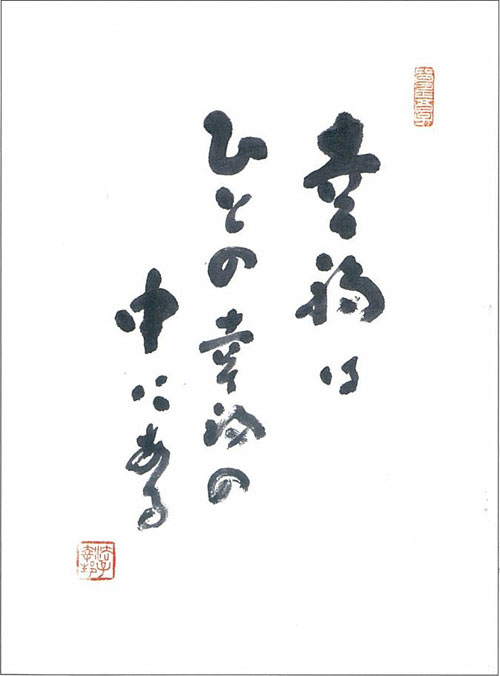 幸福は
ひとの幸福の
中にある